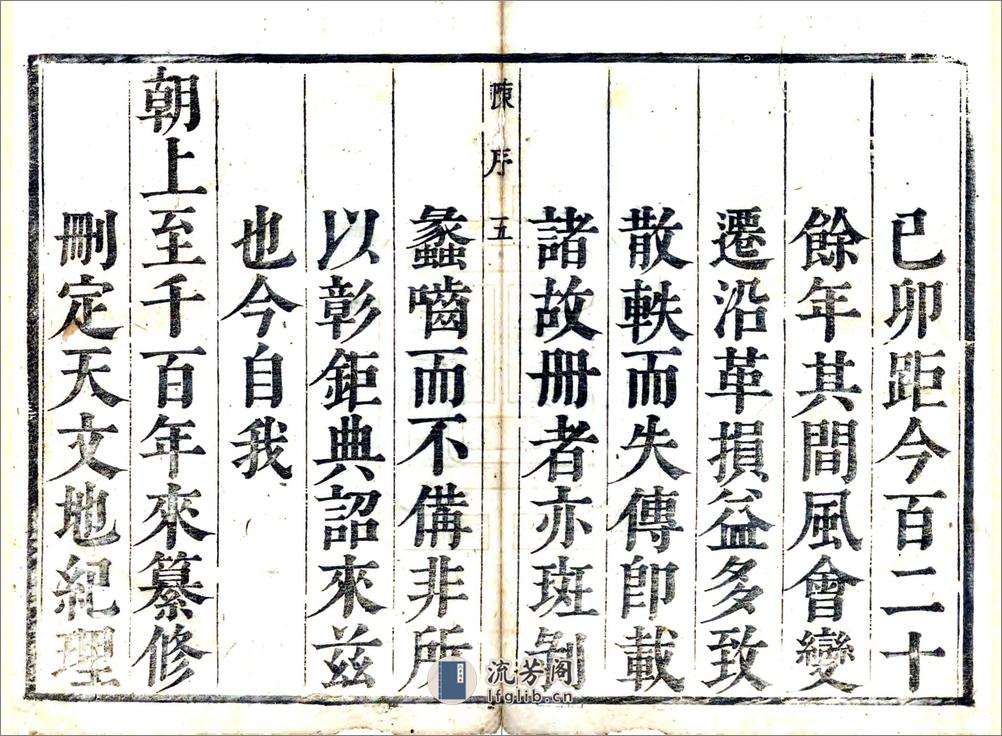 己卯距今百二十
餘年其間風會變
遷沿革損益多致
散軼而失傳卽載
諸故冊者亦斑剝
陳序 五
蠡嚙而不備非所
以彰鉅典詔來茲
也今自我
朝上至千百年來纂修
刪定天文地紀理
流芳阁
lfglib.cn